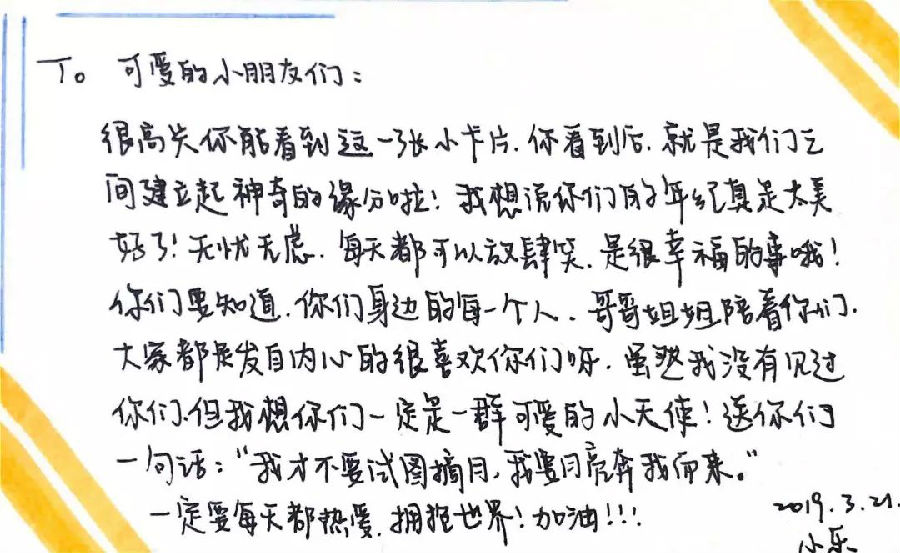 To 可爱的小朋友们：
很高兴你能看到这一张小卡片，你看到后，就是我们之
间建立起神奇的缘分啦！我想说你们的年纪真是太美
好了！无忧无虑，每天都可以放肆笑，是很幸福的事哦！
你们要知道，你们身边的每一个人、哥哥姐姐陪着你们，
大家都是发自内心的很喜欢你们呀，虽然我没有见过
你们，但我想你们一定是一群可爱的小天使！送你们
一句话：“我才不要试图摘月，我要月亮奔我而来。”
一定要每天都热爱，拥抱世界！加油！！！
2019.3.21.
小乐